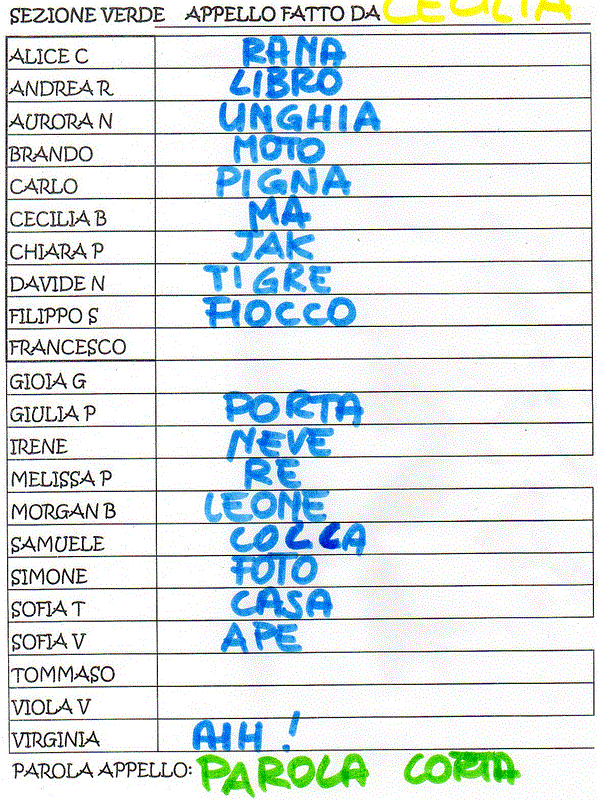 SEZIONE VERDE APPELLO FATTO DA CECILIA
ALICE C RANA
ANDREA R LIBRO
AURORA N UNGHIA
BRANDO MOTO
CARLO PIGNA
CECILIA B MA
CHIARA P JAK
DAVIDE N TIGRE
FILIPPO S FIOCCO
FRANCESCO
GIOIA G
GIULIA P PORTA
IRENE NEVE
MELISSA P RE
MORGAN B LEONE
SAMUELE COLLA
SIMONE FOTO
SOFIA T CASA
SOFIA V APE
TOMMASO
VIOLA V
VIRGINIA AIH!
PAROLA APPELLO: PAROLA CORTA